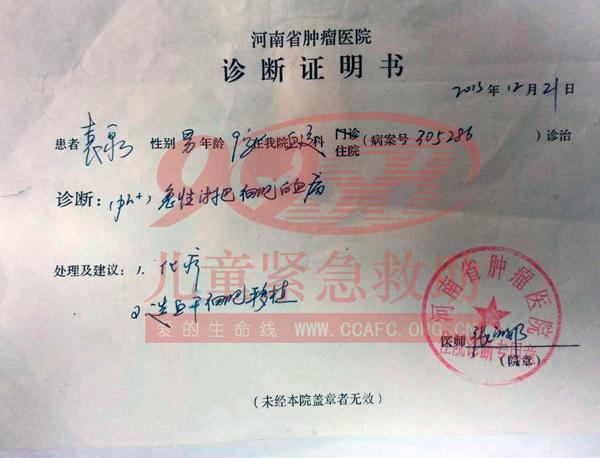 河南省肿瘤医院
诊断证明书
2015年12月21日
患者 袁泉 性别 男 年龄 9岁 在我院 血液 科 门诊 住院 (病案号 305286 ) 诊治
诊断：(ph+) 急性淋巴细胞白血病
处理及建议：1. 化疗
2 造血干细胞移植
9958
儿童紧急救助
爱的生命线 WWW.CCAFC.ORG.CN
河南省肿瘤医院
住院诊断专用章
医师
(院章)
(未经本院盖章者无效)